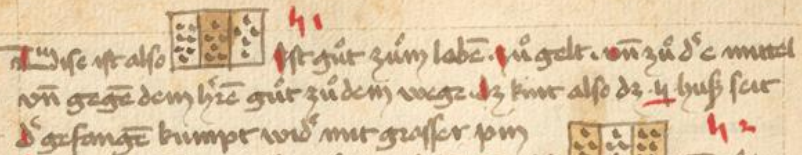 Dise ist also Ist gůt zům leben. zů gelt. vn̄ zů d᷒ e mittel
vn̄ gegē dem h᷒rē gůt zů dem wege dz kint also dz ij huß seit
d᷒ gefangē kumpt wid᷒ mit grosser pin